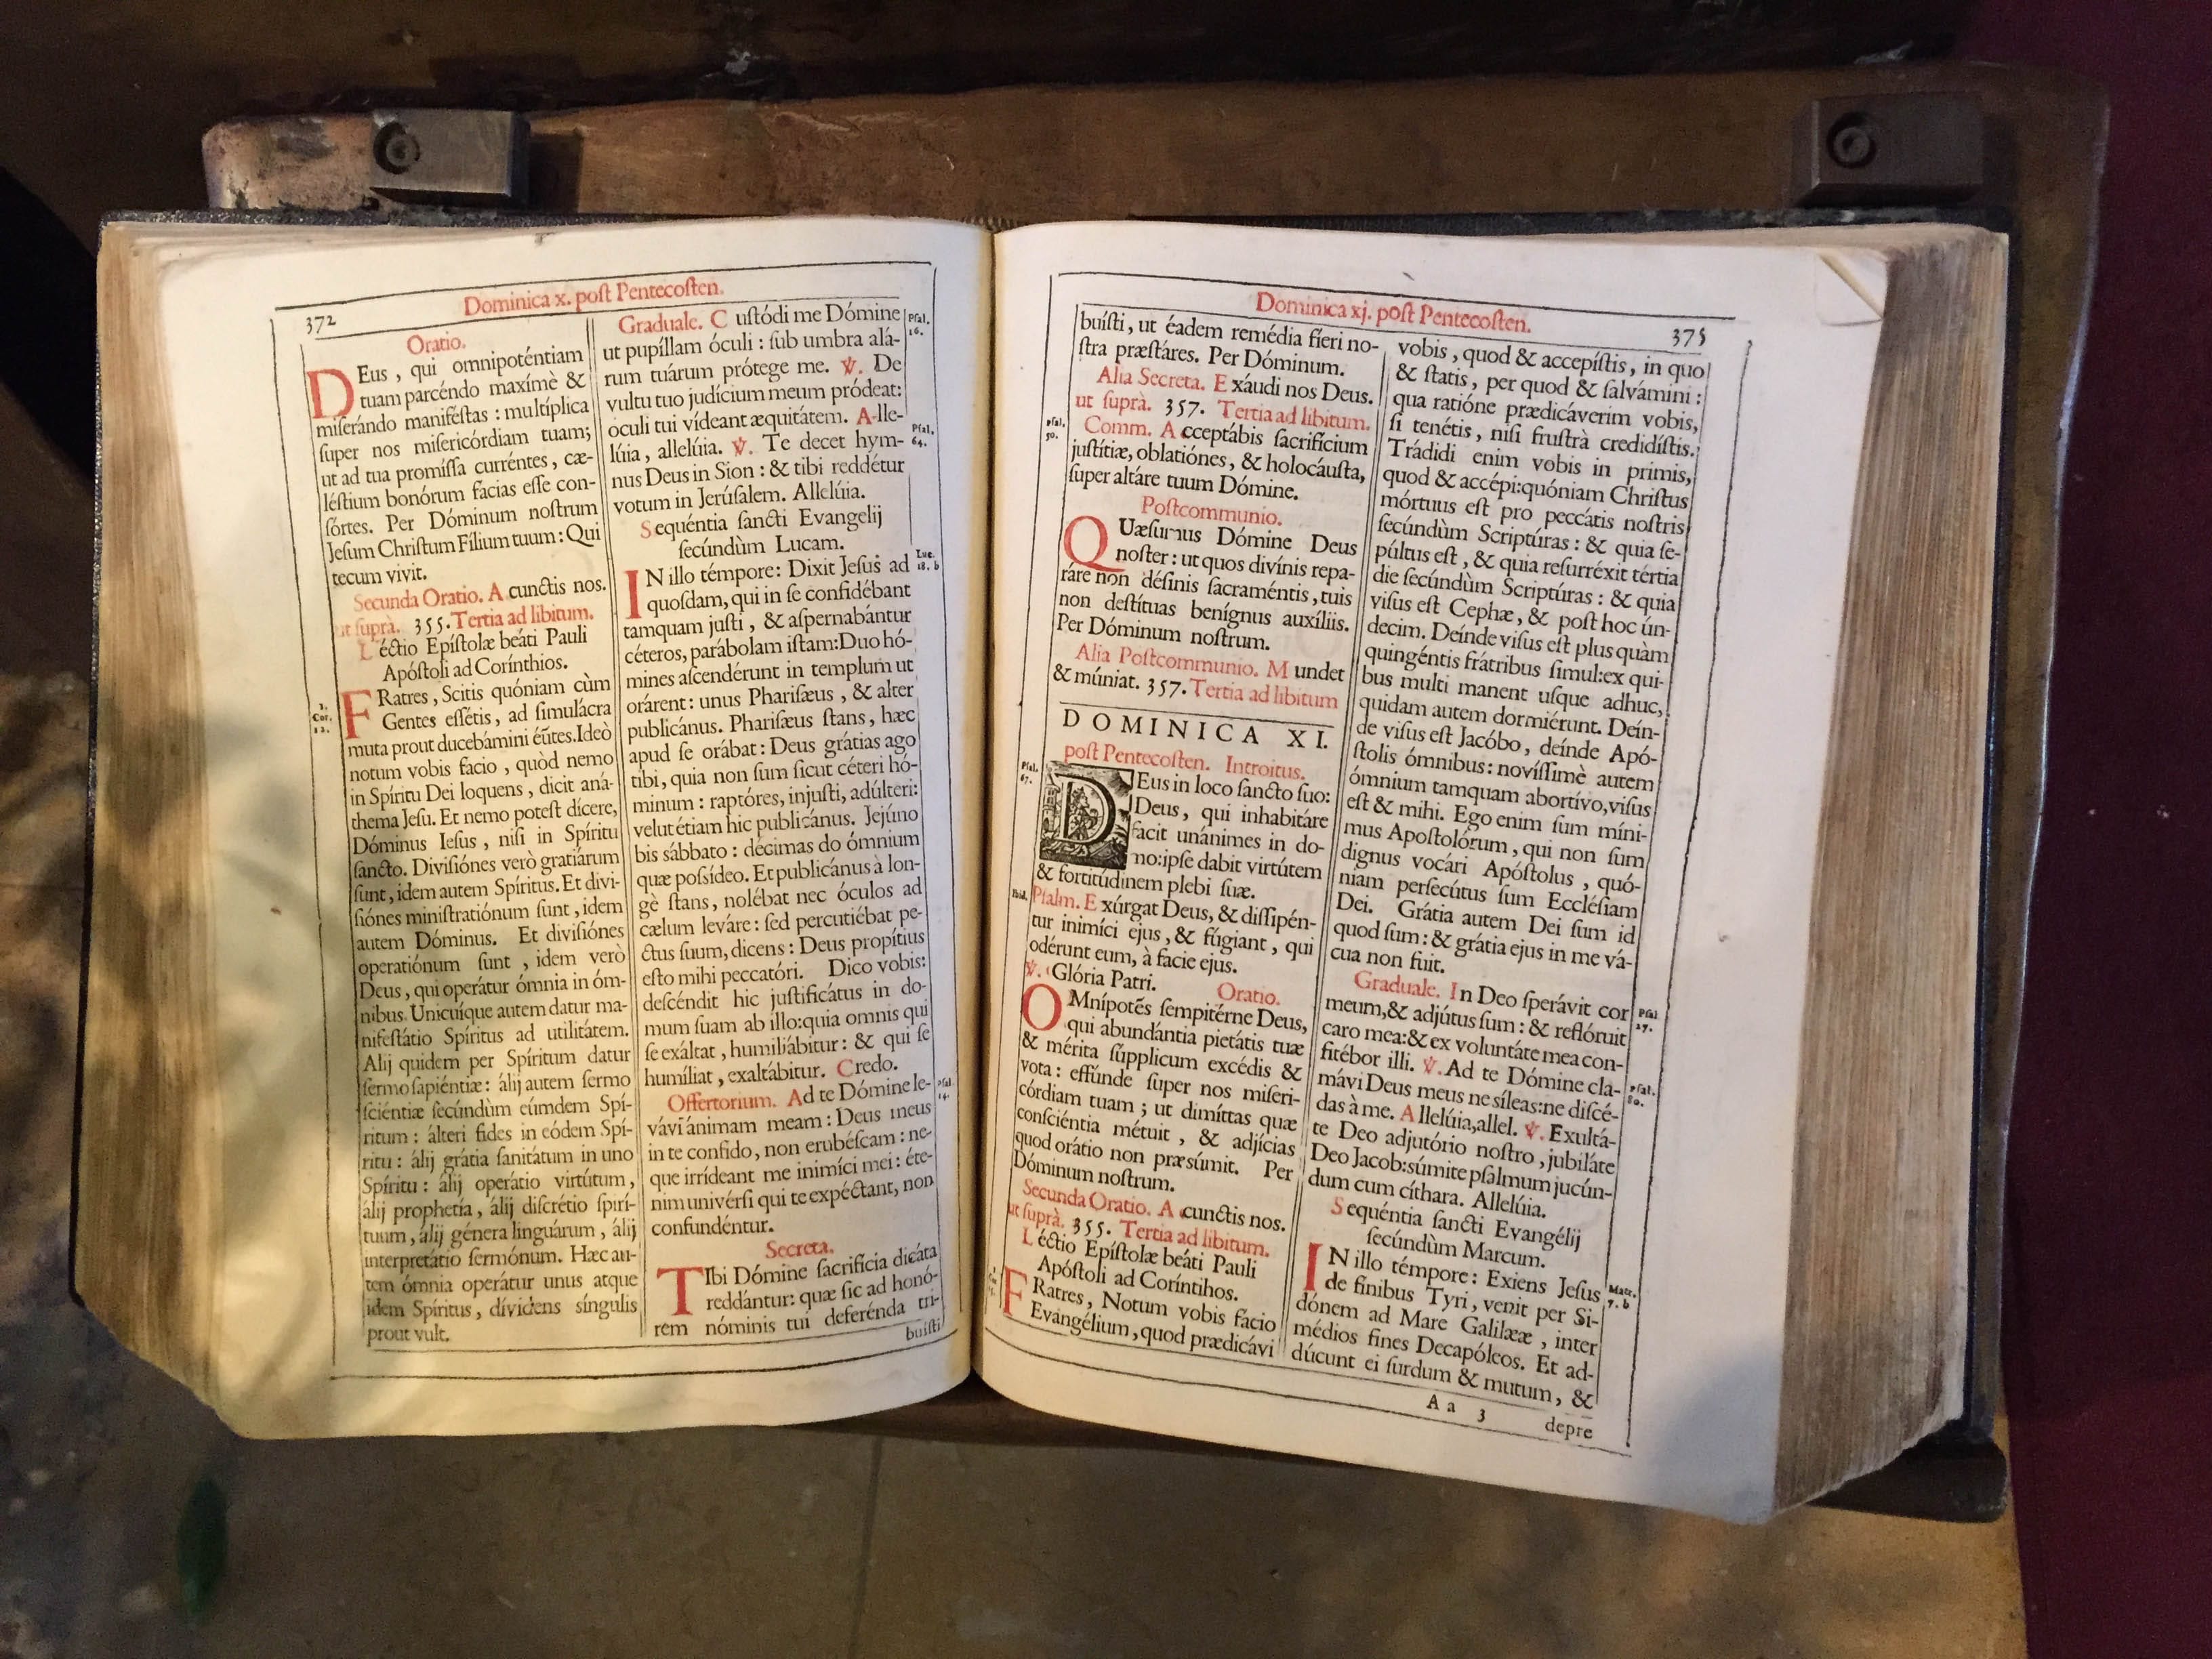 372
Dominica x. poſt Pentecoſten.
Oratio.
DEus , qui omnipoténtiam
tuam parcéndo maximè &
miſerándo maniféſtas : multíplica
ſuper nos miſericórdiam tuam;
ut ad tua promíſſa curréntes , cæ-
léſtium bonórum fácias eſſe con-
ſórtes. Per Dóminum noſtrum
Jeſum Chriſtum Fílium tuum : Qui
tecum vivit.
Secunda Oratio. A cunctis nos.
ut ſuprà. 355. Tertia ad libitum.
Léctio Epíſtolæ beáti Pauli
Apóſtoli ad Corínthios.
1.
Cor.
12.
FRatres , Scitis quóniam cùm
Gentes eſſétis, ad ſimulácra
muta prout ducebámini eũtes.Ideò
notum vobis facio , quòd nemo
in Spíritu Dei loquens , dicit aná-
thema Jeſu. Et nemo poteſt dícere,
Dóminus Ieſus , niſi in Spíritu
ſancto. Diviſiónes verò gratiárum
ſunt , idem autem Spíritus. Et divi-
ſiónes miniſtratiónum ſunt , idem
autem Dóminus. Et diviſiónes
operatiónum ſunt , idem verò
Deus , qui operátur ómnia in óm-
nibus. Unicuíque autem datur ma-
nifeſtátio Spíritus ad utilitátem.
Alij quidem per Spíritum datur
ſermo ſapiéntiæ: álij autem ſermo
ſciéntiæ ſecúndùm eúmdem Spí-
ritum : álteri fides in eódem Spí-
ritu : álij grátia ſanitátum in uno
Spíritu : álij operátio virtútum ,
álij prophetía , álij diſcrétio ſpirí-
tuum , álij génera linguárum , álij
interpretátio ſermónum. Hæc au-
tem ómnia operátur unus atque
idem Spíritus , dívidens síngulis
prout vult.
Graduale. Cuſtódi me Dómine
ut pupíllam óculi : ſub umbra alá-
rum tuárum prótege me. ℣. De
vultu tuo judícium meum pródeat:
oculi tui vídeant æquitátem. A-lle-
lúia , allelúia. ℣. Te decet hym-
nus Deus in Sion : & tibi reddétur
votum in Jerúſalem. Allelúia.
Pſal.
16.
Pſal.
64.
Sequéntia ſancti Evangelij
ſecúndùm Lucam.
Luc.
18. b
IN illo témpore: Dixit Jeſus ad
quoſdam, qui in ſe confidébant
tamquam juſti , & aſpernabántur
céteros, parábolam iſtam:Duo hó-
mines aſcendérunt in templum ut
orárent : unus Phariſæus , & alter
publicánus. Phariſæus ſtans , hæc
apud ſe orábat : Deus grátias ago
tibi, quia non ſum ſicut céteri hó-
minum : raptóres, injuſti, adúlteri:
velut étiam hic publicánus. Jejúno
bis sábbato : décimas do ómnium
quæ poſsídeo. Et publicánus à lon-
gè ſtans, nolébat nec óculos ad
cælum leváre : ſed percutiébat pe-
ctus ſuum, dicens : Deus propítius
eſto mihi peccatóri. Dico vobis:
deſcéndit hic juſtificátus in do-
mum ſuam ab illo:quia omnis qui
ſe exáltat , humiliábitur : & qui ſe
humíliat , exaltábitur. Credo.
Offertorium. Ad te Dómine le-
vávi ánimam meam : Deus meus
in te confido, non erubéſcam : ne-
que irrídeant me inimíci mei : éte-
nim univérſi qui te expéctant, non
confundéntur.
Pſal.
14.
Secreta.
TIbi Dómine ſacrifícia dicáta
reddántur: quæ ſic ad honó-
rem nóminis tui deferénda tri-
buiſti
Dominica xj. poſt Pentecoſten.
375
buíſti , ut éadem remédia fíeri no-
ſtra præſtáres. Per Dóminum.
Alia Secreta. Exáudi nos Deus.
ut ſuprà. 357. Tertia ad libitum.
Pſal.
50.
Comm. Acceptábis ſacrifícium
juſtítiæ, oblatiónes , & holocáuſta,
ſuper altáre tuum Dómine.
Poſtcommunio.
QUæſumus Dómine Deus
noſter : ut quos divínis repa-
ráre non déſinis ſacraméntis , tuis
non deſtítuas benígnus auxíliis.
Per Dóminum noſtrum.
Alia Poſtcommunio. Mundet
& múniat. 357. Tertia ad libitum
DOMINICA XI.
poſt Pentecoſten. Introitus.
Pſal.
67.
DEus in loco ſancto ſuo:
Deus , qui inhabitáre
facit unánimes in do-
mo:ipſe dabit virtútem
& fortitúdinem plebi ſuæ.
Ibid.
Pſalm. Exúrgat Deus, & diſſipén-
tur inimíci ejus , & fúgiant , qui
odérunt eum, à facie ejus.
℣. Glória Patri.
Oratio.
OMnípotẽs ſempitérne Deus,
qui abundántia pietátis tuæ
& mérita ſúpplicum excédis &
vota : effúnde ſuper nos miſeri-
córdiam tuam ; ut dimíttas quæ
conſciéntia métuit , & adjícias
quod orátio non præsúmit. Per
Dóminum noſtrum.
Secunda Oratio. A cunctis nos.
ut ſuprà. 355. Tertia ad libitum.
Léctio Epíſtolæ beáti Pauli
Apóſtoli ad Coríntihos.
FRatres , Notum vobis fácio
Evangélium , quod prædicávi
vobis , quod & accepíſtis , in quo
& ſtatis , per quod & ſalvámini :
qua ratióne prædicáverim vobis,
ſi tenétis , niſi fruſtrà credidíſtis.
Trádidi enim vobis in primis,
quod & accépi:quóniam Chriſtus
mórtuus eſt pro peccátis noſtris
ſecúndùm Scriptúras : & quia ſe-
púltus eſt , & quia reſurréxit tértia
die ſecúndùm Scriptúras : & quia
viſus eſt Cephæ , & poſt hoc ún-
decim. Deínde viſus eſt plus quàm
quingéntis frátribus ſimul:ex qui-
bus multi manent uſque adhuc,
quidam autem dormiérunt. Deín-
de viſus eſt Jacóbo , deínde Apó-
ſtolis ómnibus : novíſſimè autem
ómnium tamquam abortívo,viſus
eſt & mihi. Ego enim ſum míni-
mus Apoſtolórum , qui non ſum
dignus vocári Apóſtolus , quó-
niam perſecútus ſum Eccléſiam
Dei. Grátia autem Dei ſum id
quod ſum : & grátia ejus in me vá-
cua non fuit.
Graduale. In Deo ſperávit cor
meum,& adjútus ſum : & reflóruit
caro mea:& ex voluntáte mea con-
fitébor illi. ℣. Ad te Dómine cla-
mávi Deus meus ne síleas:ne diſcé-
das à me. Allelúia,allel. ℣. Exultá-
te Deo adjutório noſtro , jubiláte
Deo Jacob:súmite pſalmum jucún-
dum cum cíthara. Allelúia.
Pſal.
27.
Pſal.
80.
Sequéntia ſancti Evangélij
ſecúndùm Marcum.
Marc.
7. b
IN illo témpore : Exiens Jeſus
de fínibus Tyri, venit per Si-
dónem ad Mare Galilææ , inter
médios fines Decapóleos. Et ad-
dúcunt ei ſurdum & mutum , &
Aa 3
depre